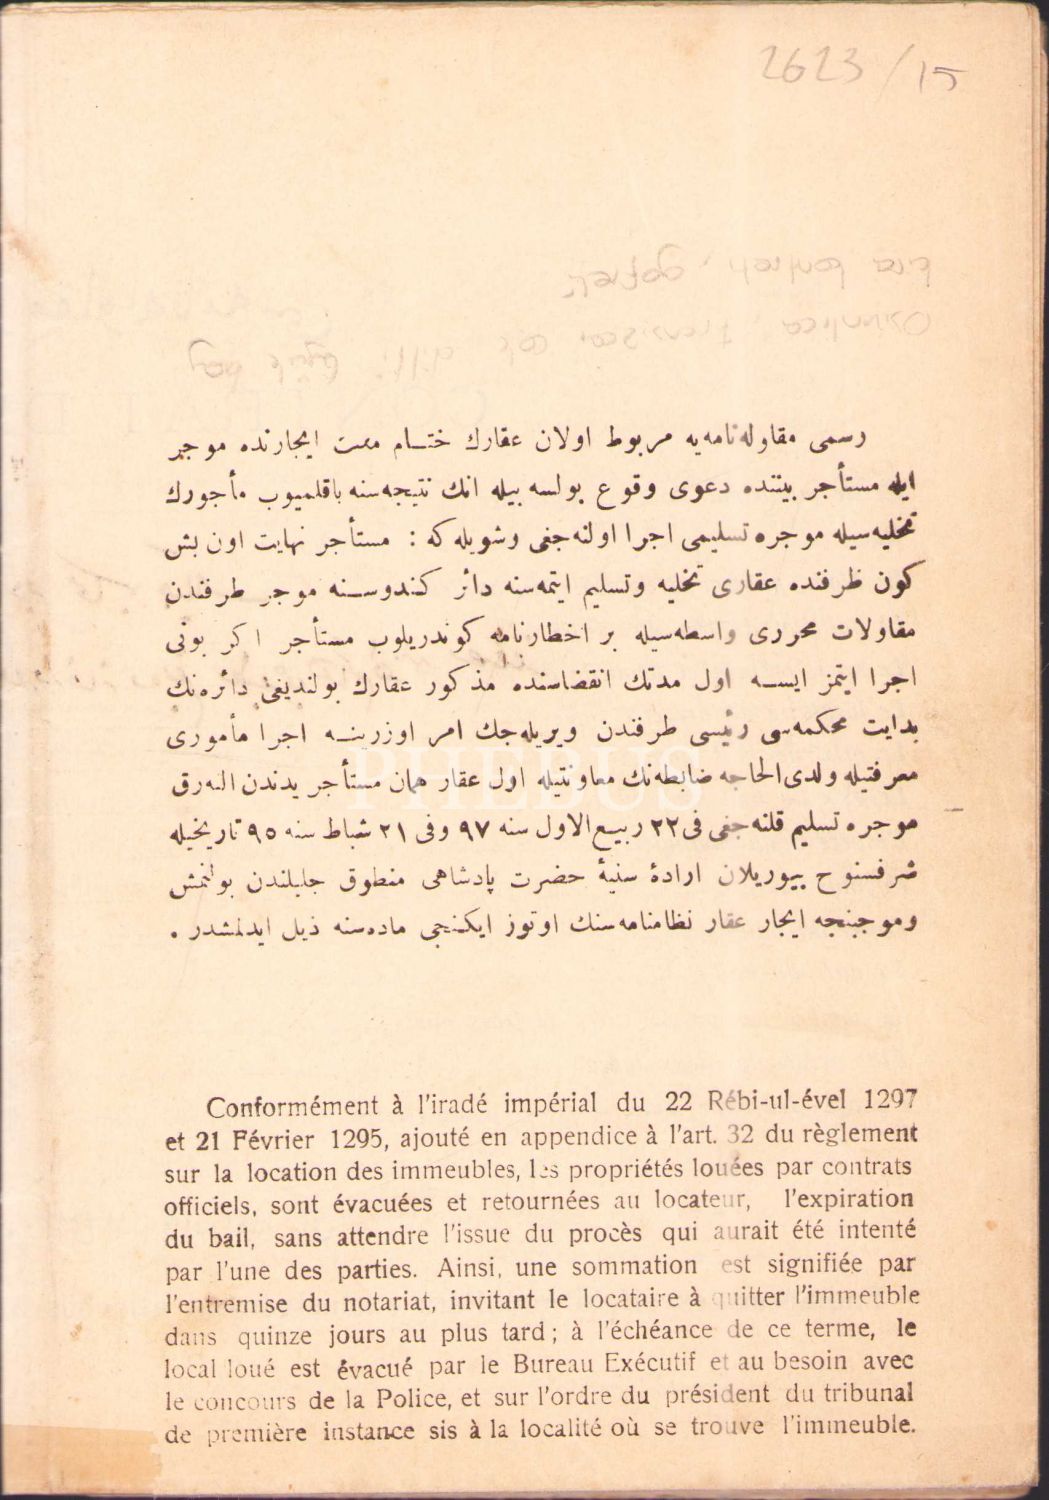 2623/15
رسمی مقاوله‌نامه‌یه مربوط اولان عقارك ختـام مدت ایجارنده موجر
ایله مستأجر بیننده دعوی وقوع بولسه بیله انك نتیجه‌سنه باقلمیوب مأجورك
تخلیه‌سیله موجره تسلیمی اجرا اولنه‌جغی وشویله‌که : مستأجر نهایت اون بش
کون ظرفنده عقاری تخلیه وتسلیم ایتمه‌سنه دائر کندوسـنه موجر طرفندن
مقاولات محرری واسطه‌سیله بر اخطارنامه کوندریلوب مستأجر اکر بونی
اجرا ایتمز ایسـه اول مدتك انقضاسنده مذکور عقارك بولندیغی دائره‌نك
بدایت محکمه‌سی رئیسی طرفندن ویریله‌جك امر اوزرینـه اجرا مأموری
معرفتیله ولدی‌الحاجه ضابطه‌نك معاونتیله اول عقار همان مستأجر یدندن النه‌رق
موجره تسلیم قلنه‌جغی فی ٢٢ ربیع‌الاول سنه ٩٧ وفی ٢١ شباط سنه ٩٥ تاریخیله
شرفسنوح بیوریلان ارادهٔ سنیهٔ حضرت پادشاهی منطوق جلیلندن بولنمش
وموجبنجه ایجار عقار نظامنامه‌سنك اوتوز ایکنجی ماده‌سنه ذیل ایدلمشدر .
PHEBUS
Conformément à l'iradé impérial du 22 Rébi-ul-ével 1297
et 21 Février 1295, ajouté en appendice à l'art. 32 du règlement
sur la location des immeubles, les propriétés louées par contrats
officiels, sont évacuées et retournées au locateur, l'expiration
du bail, sans attendre l'issue du procès qui aurait été intenté
par l'une des parties. Ainsi, une sommation est signifiée par
l'entremise du notariat, invitant le locataire à quitter l'immeuble
dans quinze jours au plus tard ; à l'échéance de ce terme, le
local loué est évacué par le Bureau Exécutif et au besoin avec
le concours de la Police, et sur l'ordre du président du tribunal
de première instance sis à la localité où se trouve l'immeuble.